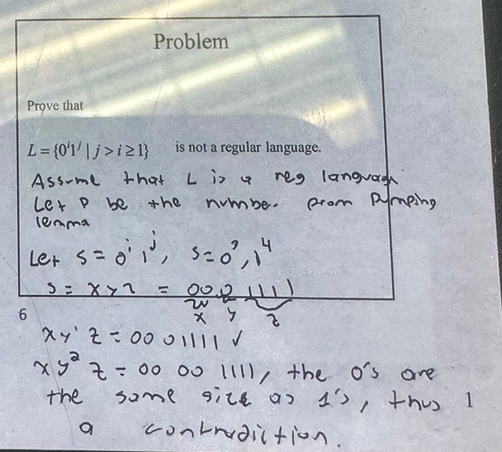 Problem
Prove that
L = {0ⁱ1ʲ | j > i ≥ 1} is not a regular language.
Assume that L is a reg language
Let P be the number from Pumping
lemma
Let s = 0ⁱ1ʲ, s = 0³, 1⁴
s = xyz = 00 0 1111
x y z
6
xy¹z = 00 01111 ✓
xy²z = 00 00 1111, the 0's are
the same size as 1's, thus
1
a contradiction.